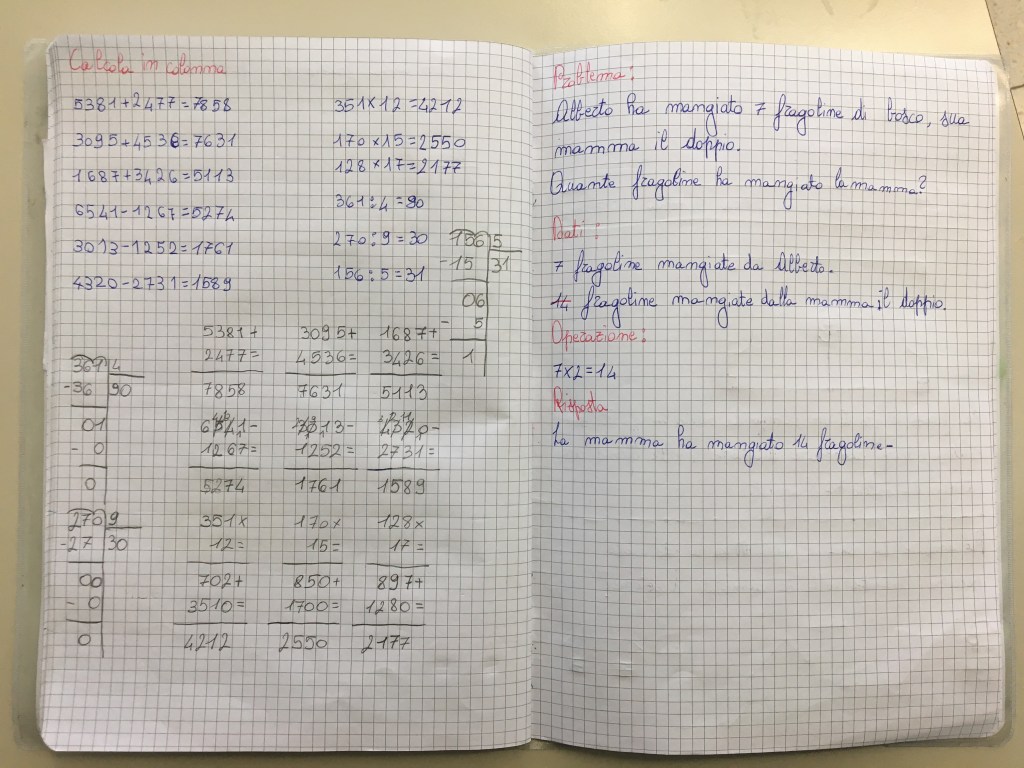 Calcola in colonna
5381+2477=7858
3095+4536=7631
1687+3426=5113
6541-1267=5274
3013-1252=1761
4320-2731=1589
351×12=4212
170×15=2550
128×17=2177
361:4=90
270:9=30
156:5=31
156 5
-15 31
06
- 5
1
5381+ 3095+ 1687+
2477= 4536= 3426=
7858 7631 5113
361 4
-36 90
01
- 0
0
6541- 3013- 4320-
1267= 1252= 2731=
5274 1761 1589
270 9
-27 30
00
- 0
0
351× 170× 128×
12= 15= 17=
702+ 850+ 897+
3510= 1700= 1280=
4212 2550 2177
Problema:
Alberto ha mangiato 7 fragoline di bosco, sua
mamma il doppio.
Quante fragoline ha mangiato la mamma?
Dati:
7 fragoline mangiate da Alberto.
14 fragoline mangiate dalla mamma il doppio.
Operazione:
7×2=14
Risposta
La mamma ha mangiato 14 fragoline-